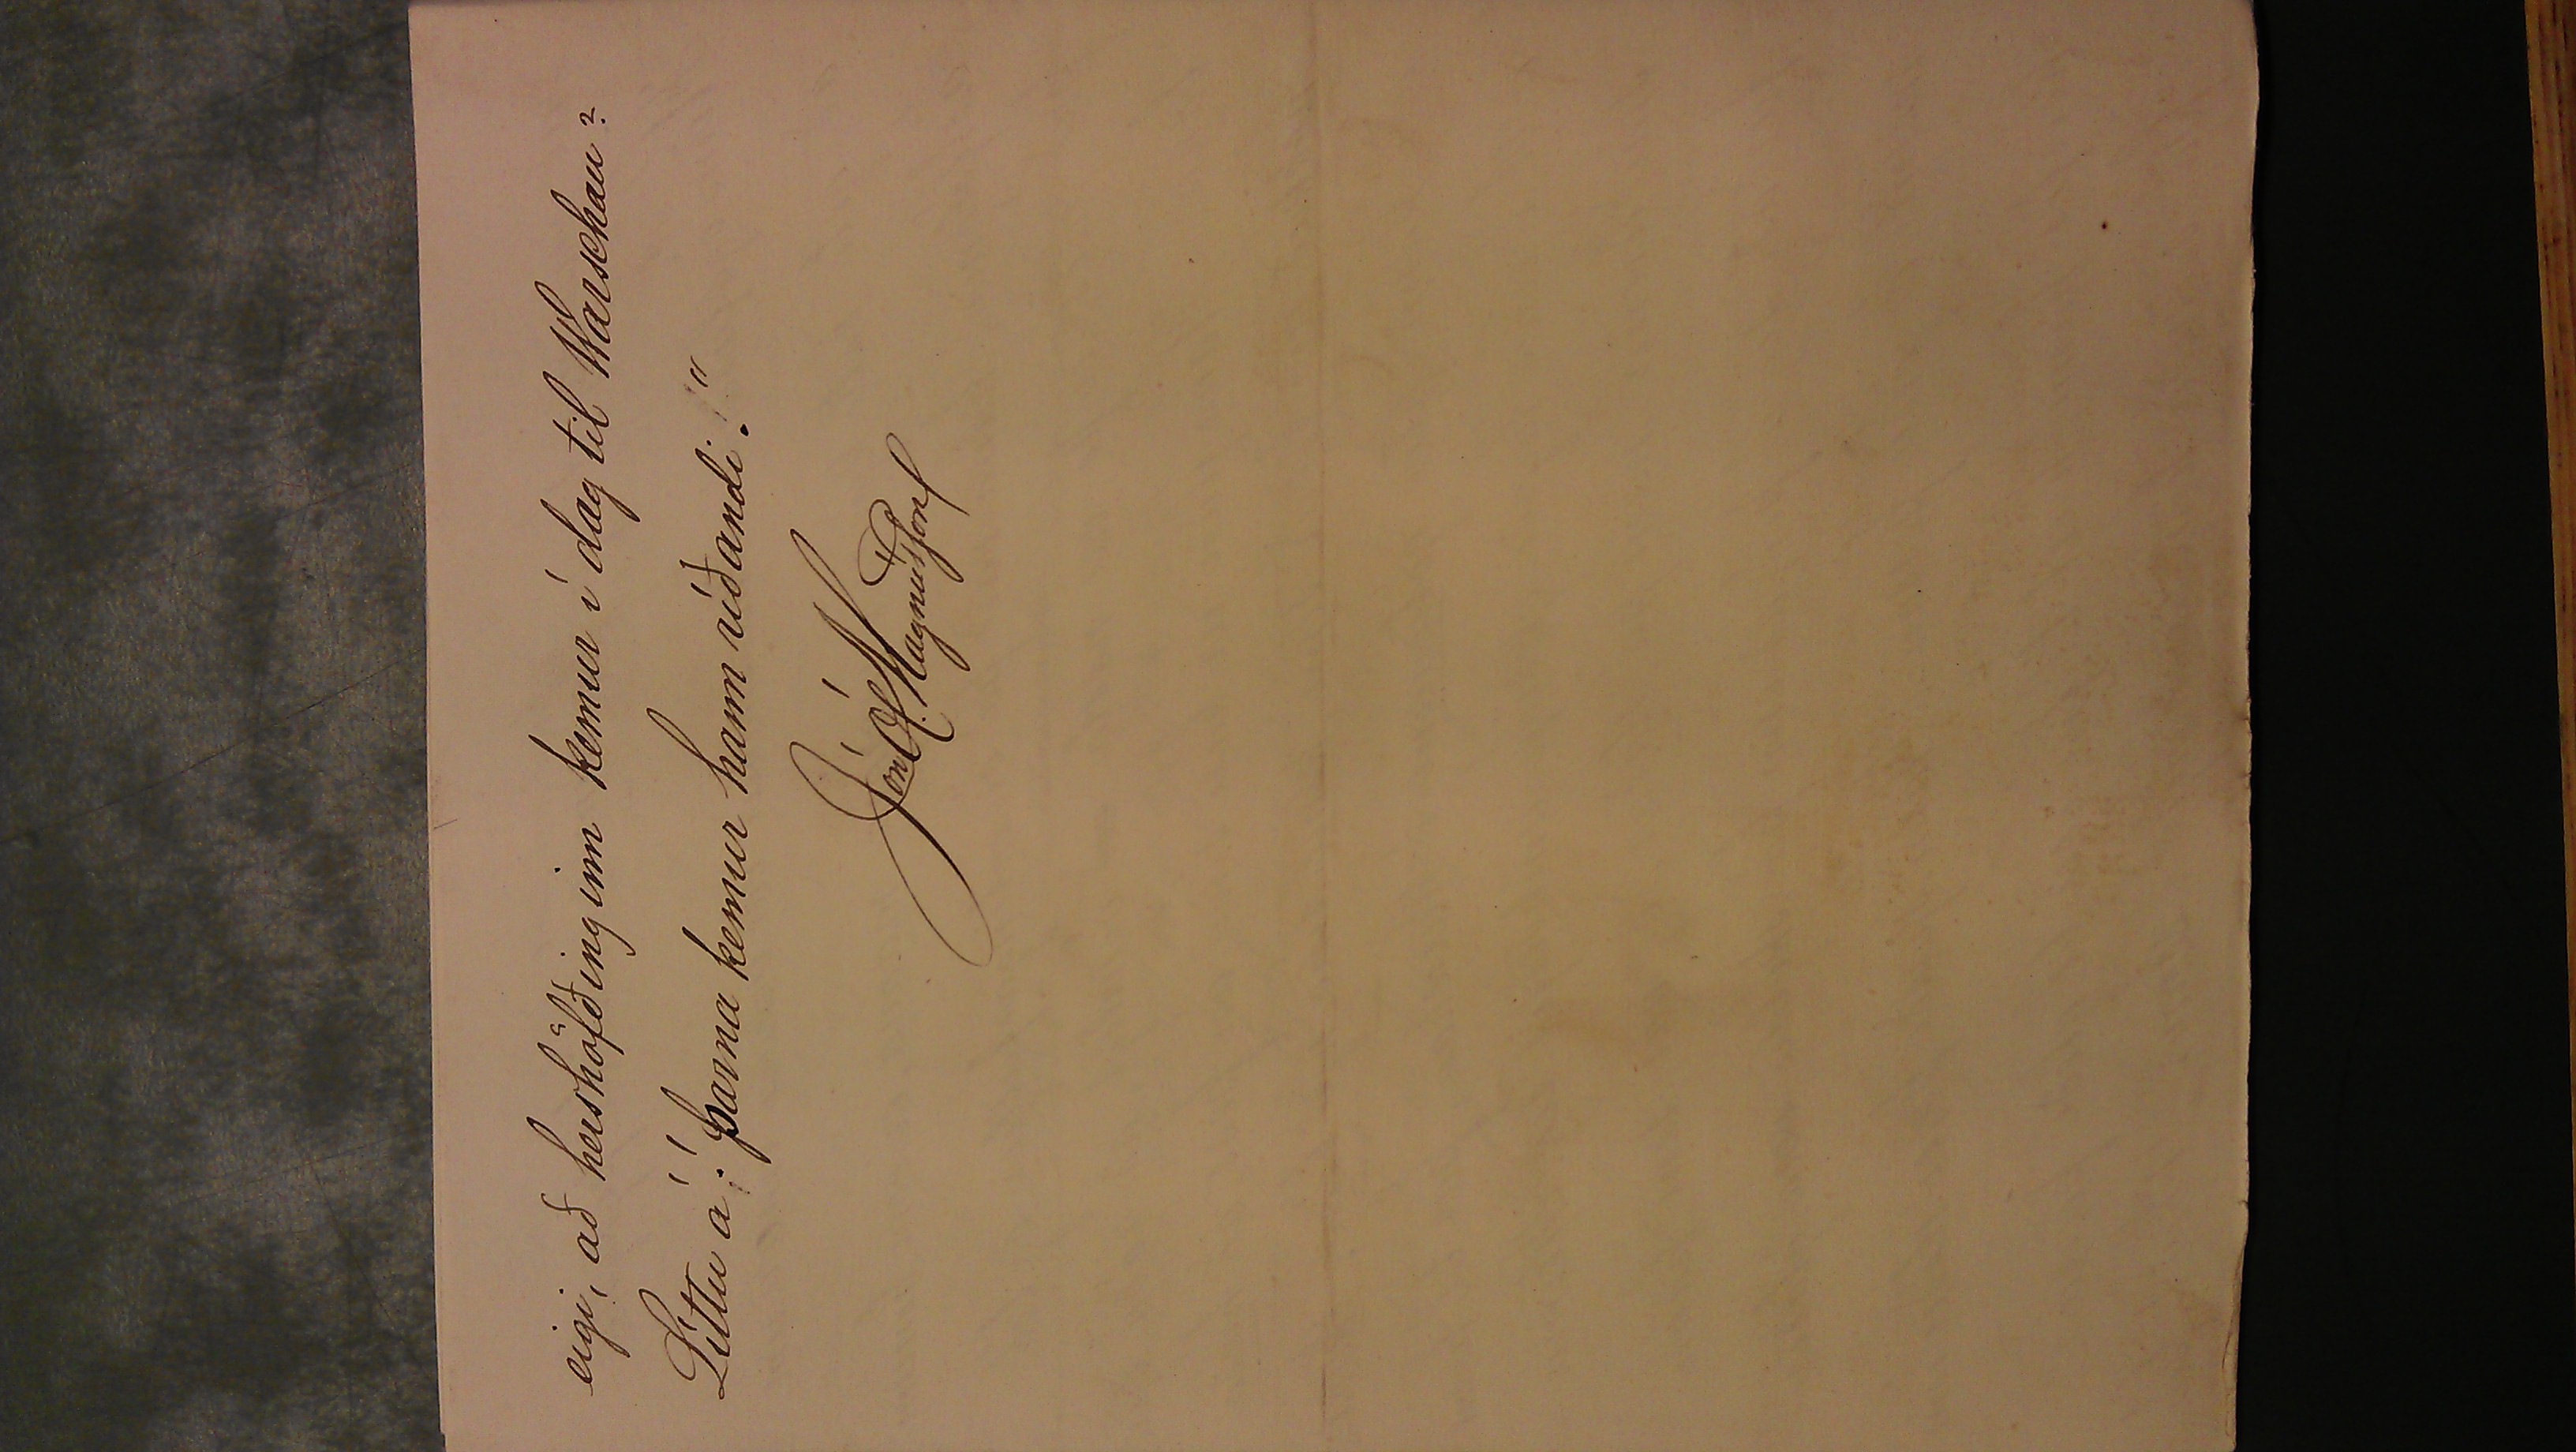 eigi, að hershöfðinginn kemur í dag til Warschau?
Líttu á! þarna kemur hann ríðandi!"
Jón Ól. Magnússon